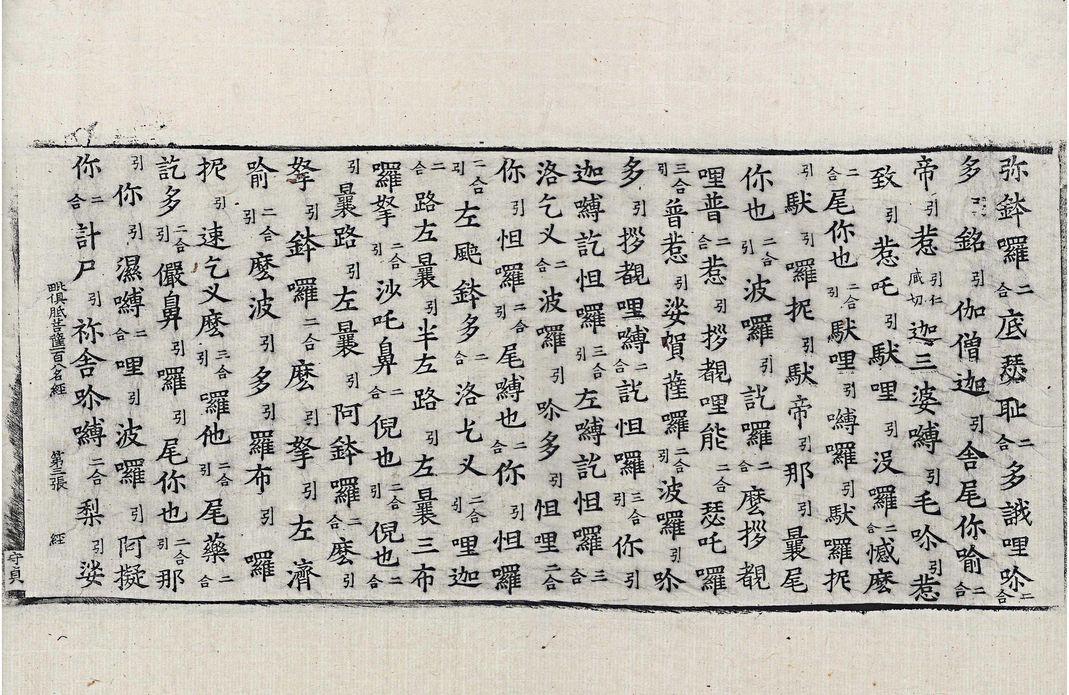 弥鉢囉二合底瑟耻二合多誐哩吩二合
多引銘引伽僧迦引舎尾你喻二合
帝引惹引仁咸切迦三婆嚩引毛吩引惹
致引惹吒引馱哩引没囉二合憾麽
二合尾你也二合引馱哩引嚩囉引馱囉抳
引馱引囉抳引馱帝引那引曩尾
你也二合引波囉引訖囉二合麽拶覩
哩普二合惹引拶覩哩能二合瑟吒囉
三合引普惹引娑賀薩囉二合引波囉引吩
多引拶覩哩嚩二合訖怛囉三合引你引
迦嚩訖怛囉三合引左嚩訖怛囉三合
洛乞义二合波囉引吩多引怛哩二合
你引怛囉二合引尾嚩也二合你引怛囉
二合引左颰鉢多二合洛乞义二合引哩迦
二合路左曩引半左路引左曩三布
囉拏引二合沙吒鼻二合倪也二合引倪也二合
引曩路引左曩引阿鉢囉二合麽引
拏引鉢囉二合麽引拏引左濟
喻二合引麽波引多引囉布引囉
抳引速乞义麽三合引囉他二合引尾藥二合
訖多二合引儼鼻引囉引尾你也二合引那
引你引濕嚩二合哩引波囉引阿擬
你二合計尸引祢舎吩嚩二合梨引娑
毗俱胝菩薩一百八名經 第三張 經
守貞